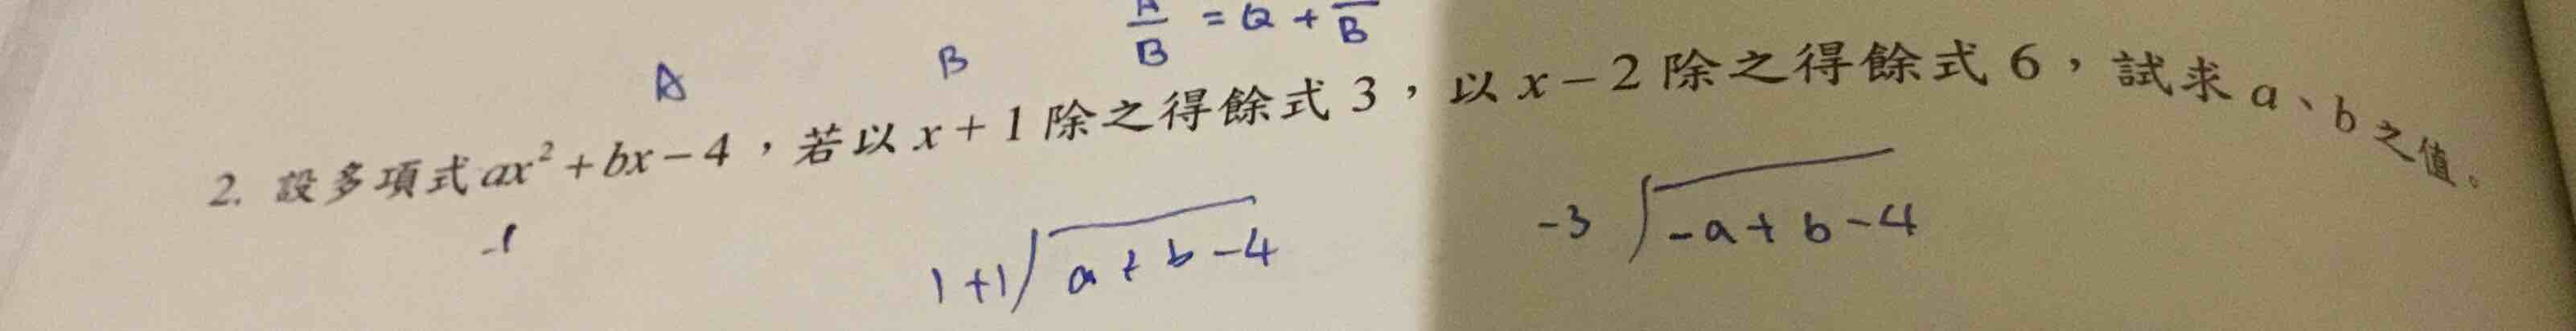 A/B = Q + /B
A B
2. 設多項式 ax² + bx − 4，若以 x + 1 除之得餘式 3，以 x − 2 除之得餘式 6，試求 a、b 之值。
-1
1+1) a + b - 4
-3 ) -a + b - 4